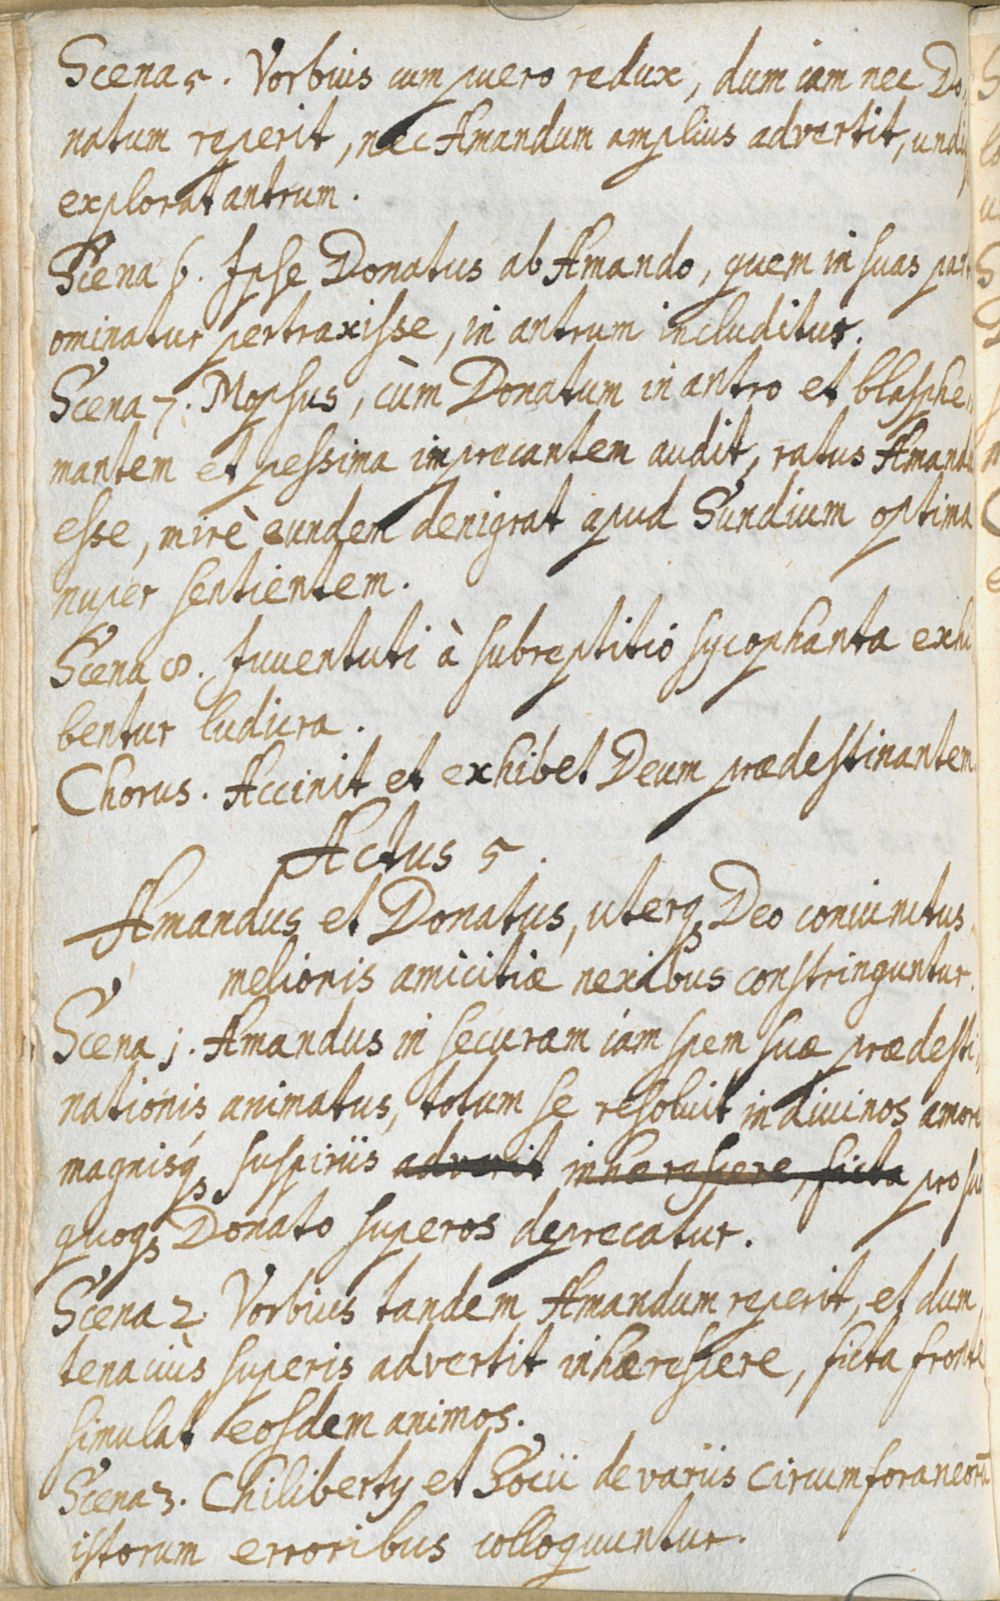 Scena 5. Vorbius cum puero redux, dum iam nec Do,
natum reperit, nec Amandum amplius advertit, undi
explorat antrum.
Scena 6. Ipse Donatus ab Amando, quem in suas par
ominatur pertraxisse, in antrum includitur.
Scena 7. Mopsus, cùm Donatum in antro et blasphe,
mantem et pessima imprecantem audit, ratus Amandu
esse, mirè eundem denigrat apud Sundium optima
nuper sentientem.
Scena 8. Iuventuti à subreptitio sycophanta exhi,
bentur ludicra.
Chorus. Accinit et exhibet Deum prædestinantem.
Actus 5.
Amandus et Donatus, uterqꝫ Deo coniunctus,
melioris amicitiæ nexibus constringuntur.
Scena 1. Amandus in securam iam spem suæ prædesti,
nationis animatus, totum se resoluit in diuinos amore
magnisqꝫ suspiriis advertit inhærescere, ficta pro suo
quoqꝫ Donato superos deprecatur.
Scena 2. Vorbius tandem Amandum reperit, et dum
tenaciùs superis advertit inhærescere, ficta fronte
simulat eosdem animos.
Scena 3. Chiliberty et Socii de variis circumforaneorū
istorum erroribus colloquuntur.